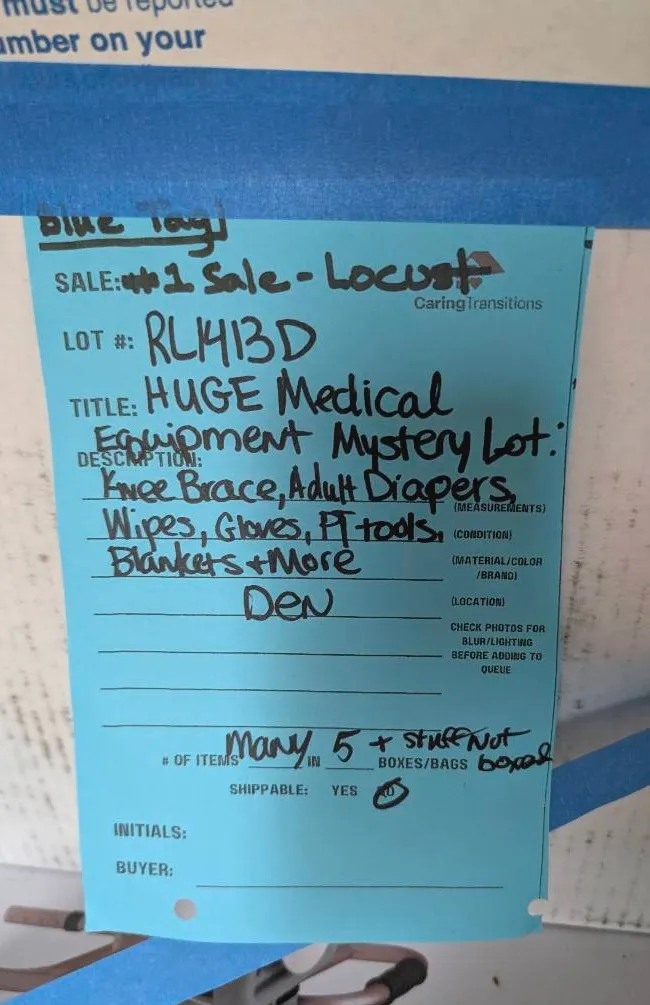 must be reported
number on your
Blue Tag
SALE: #1 Sale - Locust
CaringTransitions
LOT #: RL1413D
TITLE: HUGE Medical
Equipment Mystery Lot:
DESCRIPTION:
Knee Brace, Adult Diapers,
(MEASUREMENTS)
Wipes, Gloves, PT tools,
(CONDITION)
Blankets + More
(MATERIAL/COLOR
/BRAND)
Den
(LOCATION)
CHECK PHOTOS FOR
BLUR/LIGHTING
BEFORE ADDING TO
QUEUE
# OF ITEMS Many IN 5 + stuff Not
BOXES/BAGS boxed
SHIPPABLE: YES NO
INITIALS:
BUYER: